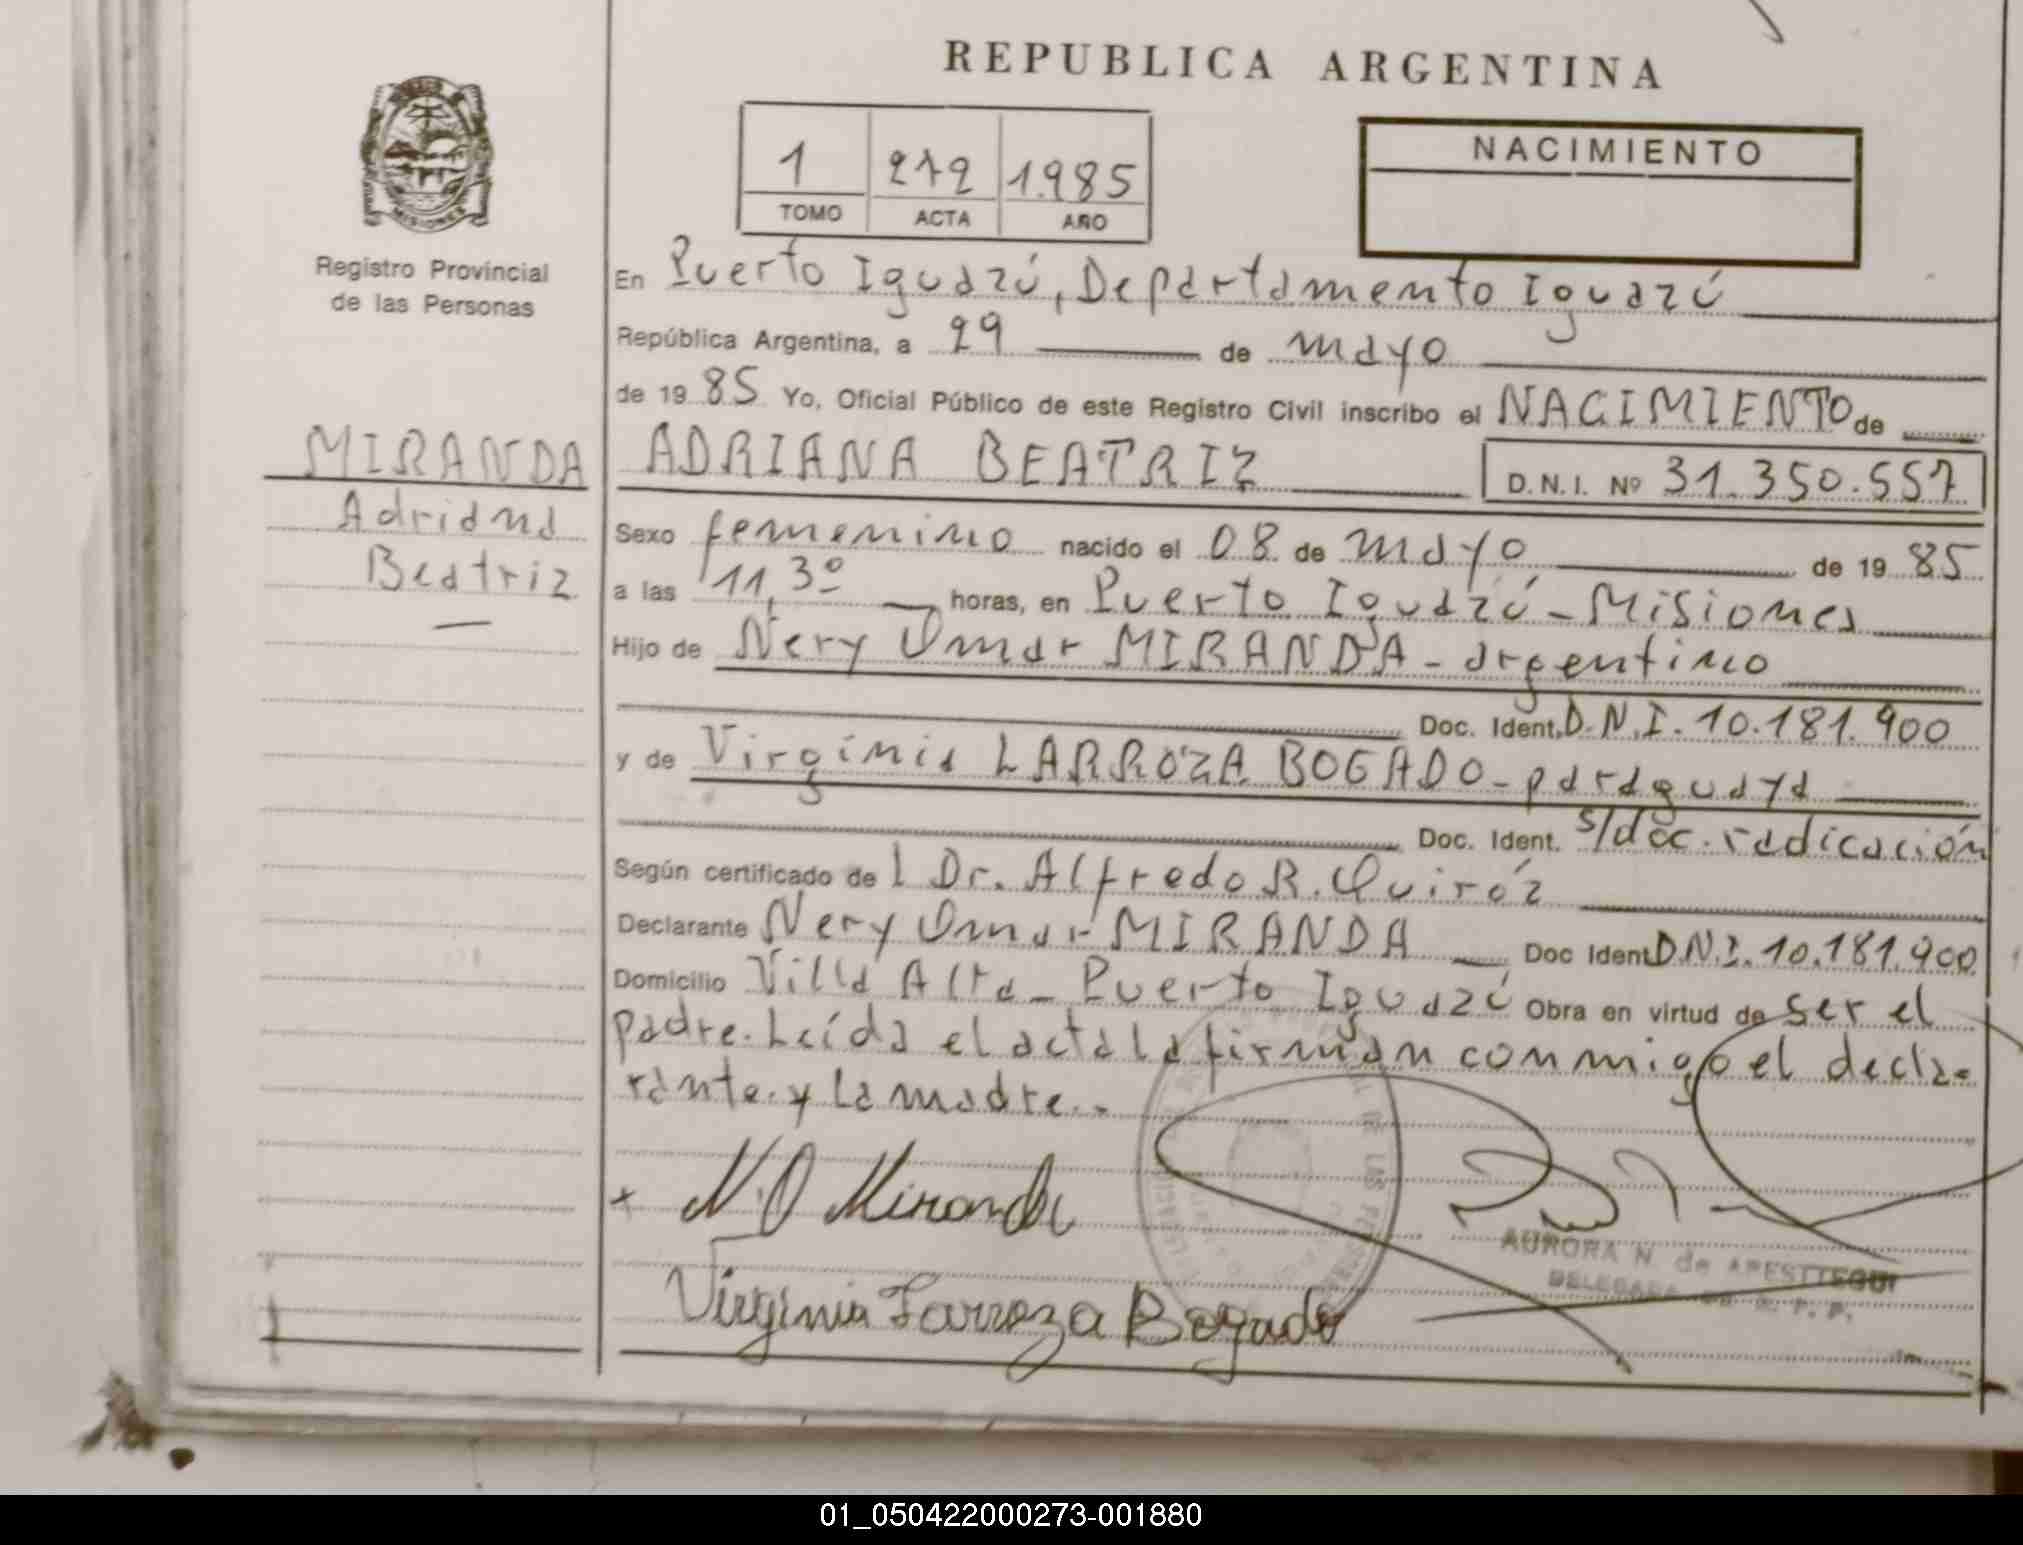 REPUBLICA ARGENTINA
MISIONES
Registro Provincial
de las Personas
1 272 1.985
TOMO ACTA AÑO
NACIMIENTO
En Puerto Iguazú, Departamento Iguazú
República Argentina, a 29 de mayo
de 19 85 Yo, Oficial Público de este Registro Civil inscribo el NACIMIENTO de
MIRANDA
Adriana
Beatriz
ADRIANA BEATRIZ D.N.I. Nº 31.350.557
Sexo femenino nacido el 08 de mayo de 19 85
a las 11,30 horas, en Puerto Iguazú - Misiones
Hijo de Nery Omar MIRANDA - argentino
Doc. Ident. D.N.I. 10.181.900
y de Virginia LARROZA BOGADO - paraguaya
Doc. Ident. s/doc. radicación
Según certificado del Dr. Alfredo R. Quiróz
Declarante Nery Omar MIRANDA Doc Ident D.N.I. 10.181.900
Domicilio Villa Alta - Puerto Iguazú Obra en virtud de ser el
padre. Leída el acta la firman conmigo el decla-
rante y la madre.-
+ N.O Miranda
AURORA N. de APESTTEGUI
Virginia Larroza Bogado
01_050422000273-001880